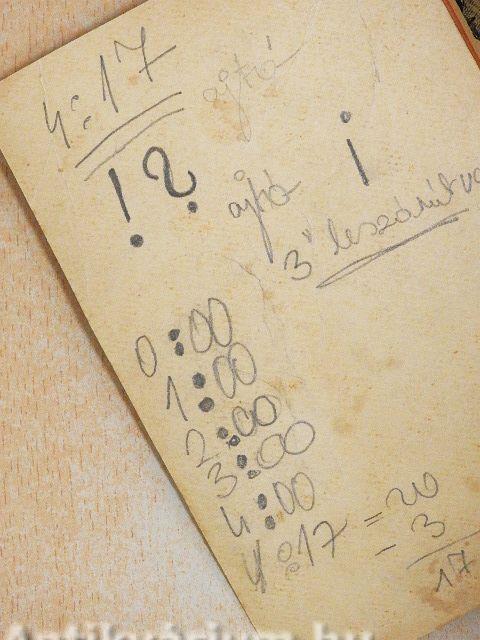 4:17
ajtó
!?
ajtó i
3" leszámítva
0:00
1:00
2:00
3:00
4:00
4:17 = 20
- 3
17
Antikvárium.hu